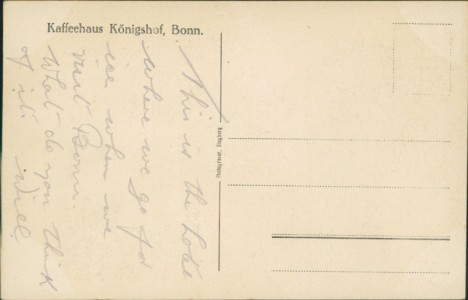 Kaffeehaus Königshof, Bonn.
This is the hotel
where we go for
ice when we
visit Bonn.
What do you think
of it.
Will.